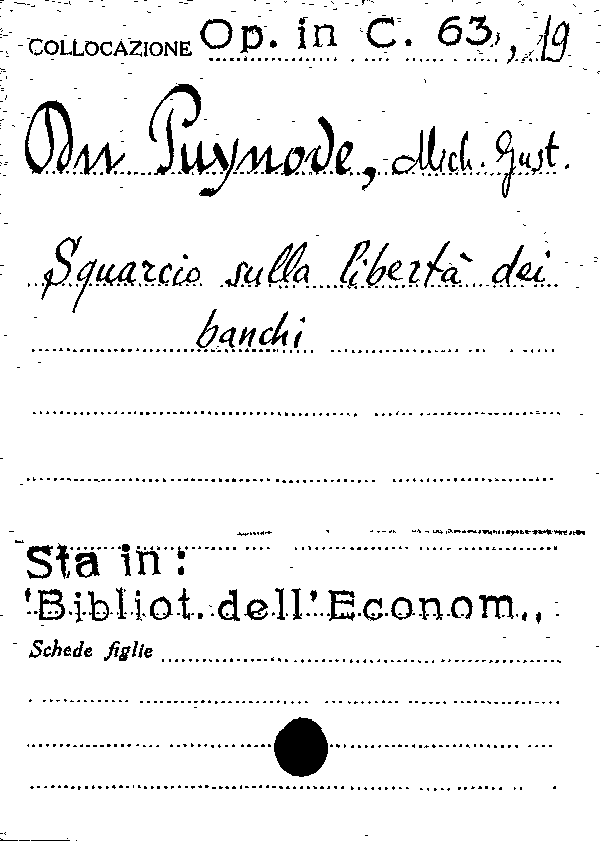 COLLOCAZIONE Op. in C. 63, 19
Du Puynode, Mich. Gust.
Squarcio sulla libertà dei
banchi
Sta in:
"Bibliot. dell' Econom.„
Schede figlie